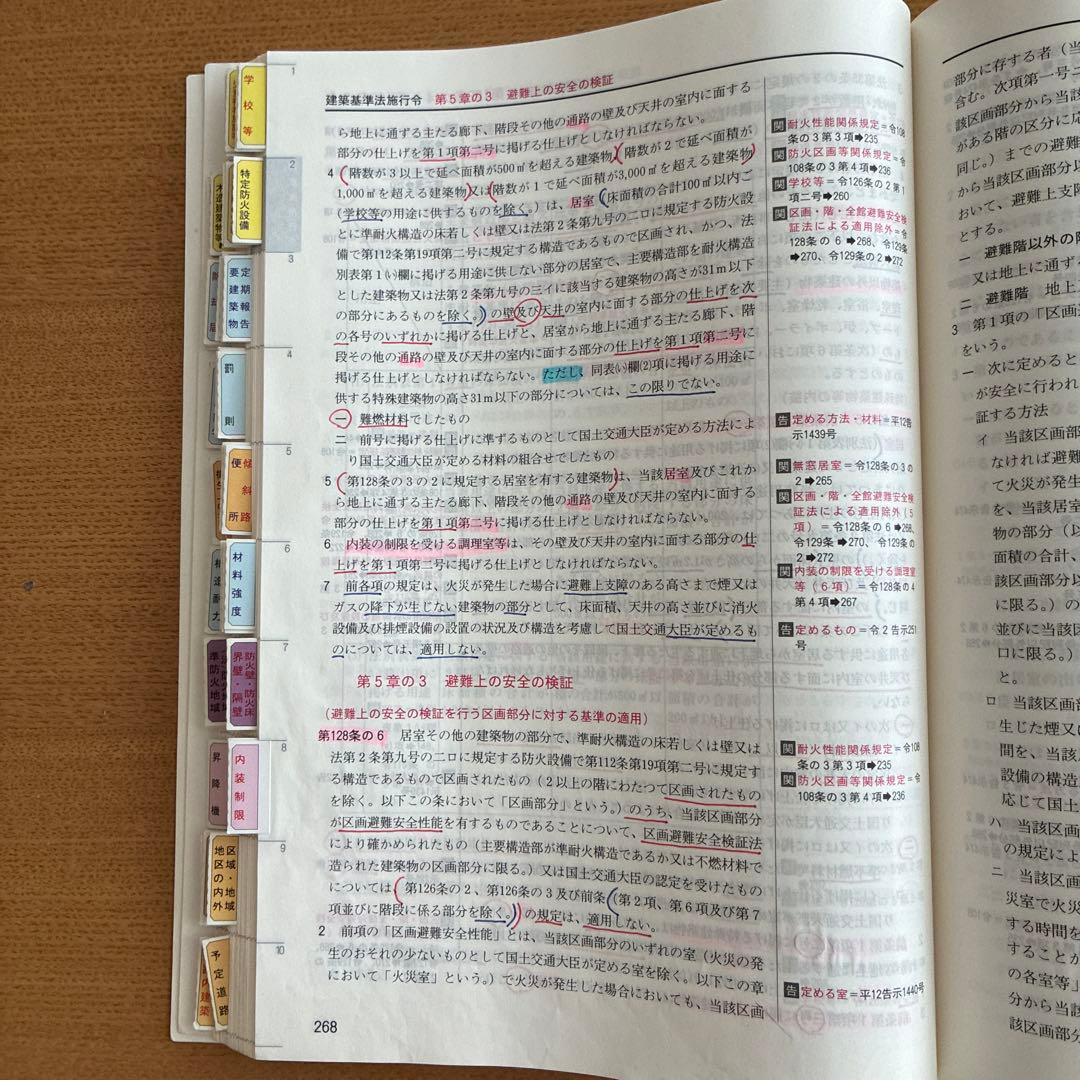 建築基準法施行令 第5章の3 避難上の安全の検証
ら地上に通ずる主たる廊下、階段その他の通路の壁及び天井の室内に面する
部分の仕上げを第1項第二号に掲げる仕上げとしなければならない。
4 (階数が3以上で延べ面積が500㎡を超える建築物、(階数が2で延べ面積が
1,000㎡を超える建築物)又は(階数が1で延べ面積が3,000㎡を超える建築物)
(学校等の用途に供するものを除く。)は、居室(床面積の合計100㎡以内ご
とに準耐火構造の床若しくは壁又は法第2条第九号の二ロに規定する防火設
備で第112条第19項第二号に規定する構造であるもので区画され、かつ、法
別表第1(い)欄に掲げる用途に供しない部分の居室で、主要構造部を耐火構造
とした建築物又は法第2条第九号の三イに該当する建築物の高さが31m以下
の部分にあるものを除く。)の壁及び天井の室内に面する部分の仕上げを次
の各号のいずれかに掲げる仕上げと、居室から地上に通ずる主たる廊下、階
段その他の通路の壁及び天井の室内に面する部分の仕上げを第1項第二号に
掲げる仕上げとしなければならない。ただし、同表(い)欄(2)項に掲げる用途に
供する特殊建築物の高さ31m以下の部分については、この限りでない。
一 難燃材料でしたもの
二 前号に掲げる仕上げに準ずるものとして国土交通大臣が定める方法によ
り国土交通大臣が定める材料の組合せでしたもの
5 (第128条の3の2に規定する居室を有する建築物)は、当該居室及びこれか
ら地上に通ずる主たる廊下、階段その他の通路の壁及び天井の室内に面する
部分の仕上げを第1項第二号に掲げる仕上げとしなければならない。
6 内装の制限を受ける調理室等は、その壁及び天井の室内に面する部分の仕
上げを第1項第二号に掲げる仕上げとしなければならない。
7 前各項の規定は、火災が発生した場合に避難上支障のある高さまで煙又は
ガスの降下が生じない建築物の部分として、床面積、天井の高さ並びに消火
設備及び排煙設備の設置の状況及び構造を考慮して国土交通大臣が定めるも
のについては、適用しない。
第5章の3 避難上の安全の検証
(避難上の安全の検証を行う区画部分に対する基準の適用)
第128条の6 居室その他の建築物の部分で、準耐火構造の床若しくは壁又は
法第2条第九号の二ロに規定する防火設備で第112条第19項第二号に規定す
る構造であるもので区画されたもの(2以上の階にわたつて区画されたもの
を除く。以下この条において「区画部分」という。)のうち、当該区画部分
が区画避難安全性能を有するものであることについて、区画避難安全検証法
により確かめられたもの(主要構造部が準耐火構造であるか又は不燃材料で
造られた建築物の区画部分に限る。)又は国土交通大臣の認定を受けたもの
については(第126条の2、第126条の3及び前条(第2項、第6項及び第7
項並びに階段に係る部分を除く。))の規定は、適用しない。
2 前項の「区画避難安全性能」とは、当該区画部分のいずれの室(火災の発
生のおそれの少ないものとして国土交通大臣が定める室を除く。以下この章
において「火災室」という。)で火災が発生した場合においても、当該区画
268
関 耐火性能関係規定=令108
条の3第3項➡235
関 防火区画等関係規定=令
108条の3第4項➡236
関 学校等=令126条の2第1
項二号➡260
関 区画・階・全館避難安全検
証法による適用除外=令
128条の6➡268、令129条
➡270、令129条の2➡272
告 定める方法・材料=平12告
示1439号
関 無窓居室=令128条の3の
2➡265
関 区画・階・全館避難安全検
証法による適用除外(5
項)=令128条の6➡268、
令129条➡270、令129条の
2➡272
関 内装の制限を受ける調理室
等(6項)=令128条の4
第4項➡267
告 定めるもの=令2告示251
号
関 耐火性能関係規定=令108
条の3第3項➡235
関 防火区画等関係規定=令
108条の3第4項➡236
告 定める室=平12告示1440号
学校等
特定防火設備
定期報告
要建築物
罰則
傾斜路
便所
材料強度
防火壁・防火床
界壁・隔壁
準防火地域
昇降機
内装制限
区域・地域
地区の内外
予定道路
1
2
3
4
5
6
7
8
9
10
部分に存する者(当
含む。次項第一号ニ
該区画部分から当該
がある階の区分に応
同じ。)までの避難
から当該区画部分以
おいて、避難上支障
とする。
一 避難階以外の階
又は地上に通ず
二 避難階 地上
3 第1項の「区画
をいう。
一 次に定めると
が安全に行われ
証する方法
イ 当該居室
なければ避難
て火災が発生
を、当該居室
物の部分(以
面積の合計、
該区画部分以
に限る。)の
並びに当該区
ロに限る。)
と。
ロ 当該区画部
生じた煙又
間を、当該区
設備の構造
応じて国土
ハ 当該区画
の規定によ
ニ 当該区画
災室で火災
する時間を
することが
の各室等」
分から当該
該区画部分